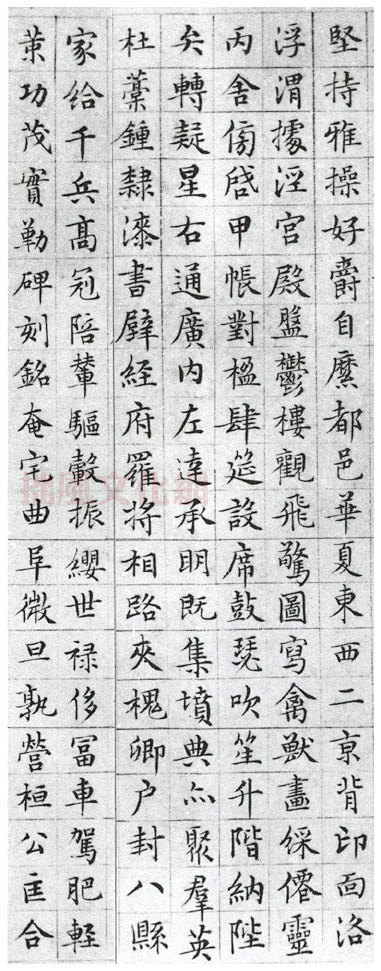 堅持雅操好爵自縻都邑華夏東西二亰背邙面洛
浮渭據涇宮殿盤鬱樓觀飛驚圖寫禽獸畫綵僊靈
丙舍傍啓甲帳對楹肆筵設席鼓瑟吹笙升階納陛
弁轉疑星右通廣内左達承明既集墳典亦聚羣英
杜藁鍾隸漆書壁經府羅將相路夾槐卿户封八縣
家給千兵高冠陪輦驅轂振纓世禄侈冨車駕肥輕
策功茂實勒碑刻銘奄宅曲阜微旦孰營桓公匡合
拙風文化網